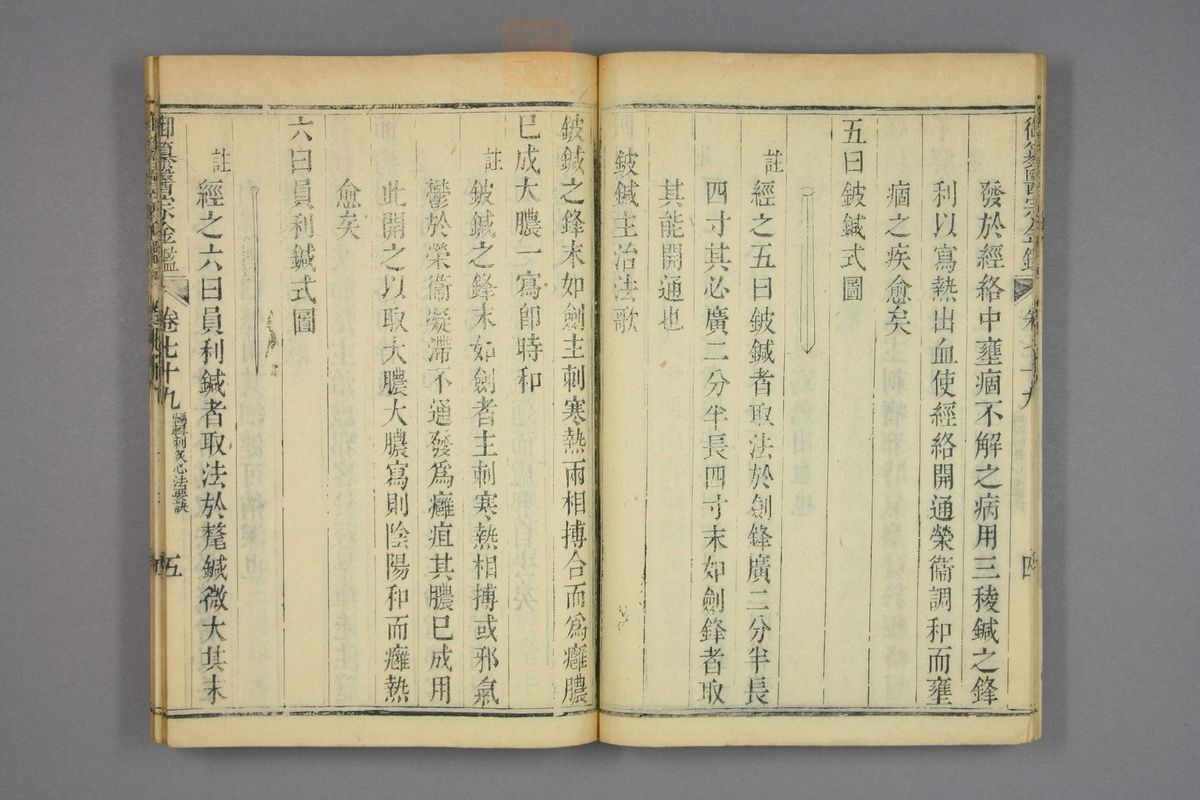 發於經絡中壅痼不解之病用三稜鍼之鋒
利以寫熱出血使經絡開通榮衞調和而壅
痼之疾愈矣
五曰鈹鍼式圖
註
經之五曰鈹鍼者取法於劍鋒廣二分半長
四寸其必廣二分半長四寸末如劍鋒者取
其能開通也
鈹鍼主治法歌
鈹鍼之鋒末如劍主刺寒熱兩相搏合而爲癰膿
已成大膿一寫即時和
註
鈹鍼之鋒末如劍者主刺寒熱相搏或邪氣
鬱於榮衞凝滯不通發爲癰疽其膿已成用
此開之以取大膿大膿寫則陰陽和而癰熱
愈矣
六曰員利鍼式圖
註
經之六曰員利鍼者取法於氂鍼微大其末
御纂醫宗金鑑
卷七十九
編輯刺灸心法要訣
五
御纂醫宗金鑑
四